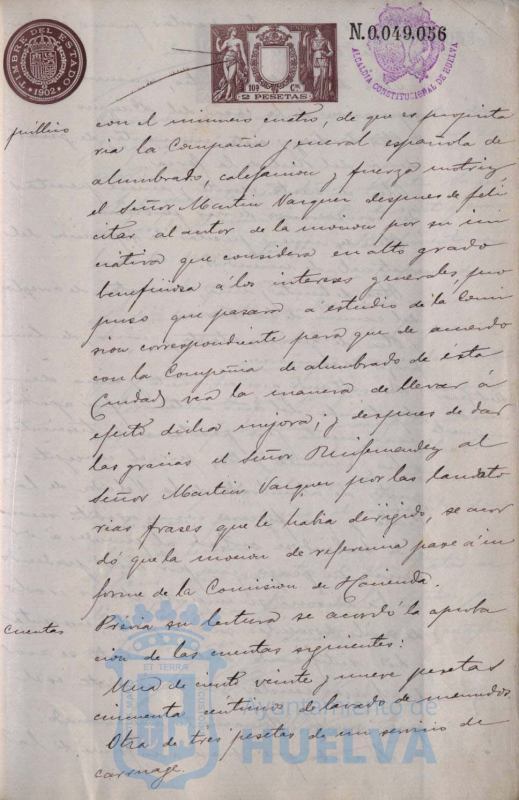 TIMBRE DEL ESTADO
1902
10ª Cla.
2 PESETAS
N.0.049.056
ALCALDIA CONSTITUCIONAL DE HUELVA
público
con el número cuatro, de que es propieta
ria la Compañia general española de
alumbrado, calefacion y fuerza motriz,
el Señor Martin Vazquez despues de feli
citar al autor de la mocion por su ini
ciativa que considera en alto grado
beneficiosa á los intereses generales, pro
puso que pasara á estudio de la Comi
sion correspondiente para que de acuerdo
con la Compañia de alumbrado de ésta
Ciudad vea la manera de llevar á
efecto dicha mejora; y despues de dar
las gracias el Señor Ruifernandez al
Señor Martin Vazquez por las laudato
rias frases que le habia dirigido, se acor
dó que la mocion de referencia pase á in
forme de la Comision de Hacienda.
cuentas
Prévia su lectura se acordó la aproba
cion de las cuentas siguientes:
Una de ciento veinte y nueve pesetas
cincuenta céntimos de lavado de menudos.
Otra de tres pesetas de un servicio de
carruage.
ET TERRÆ
Ayuntamiento de
HUELVA